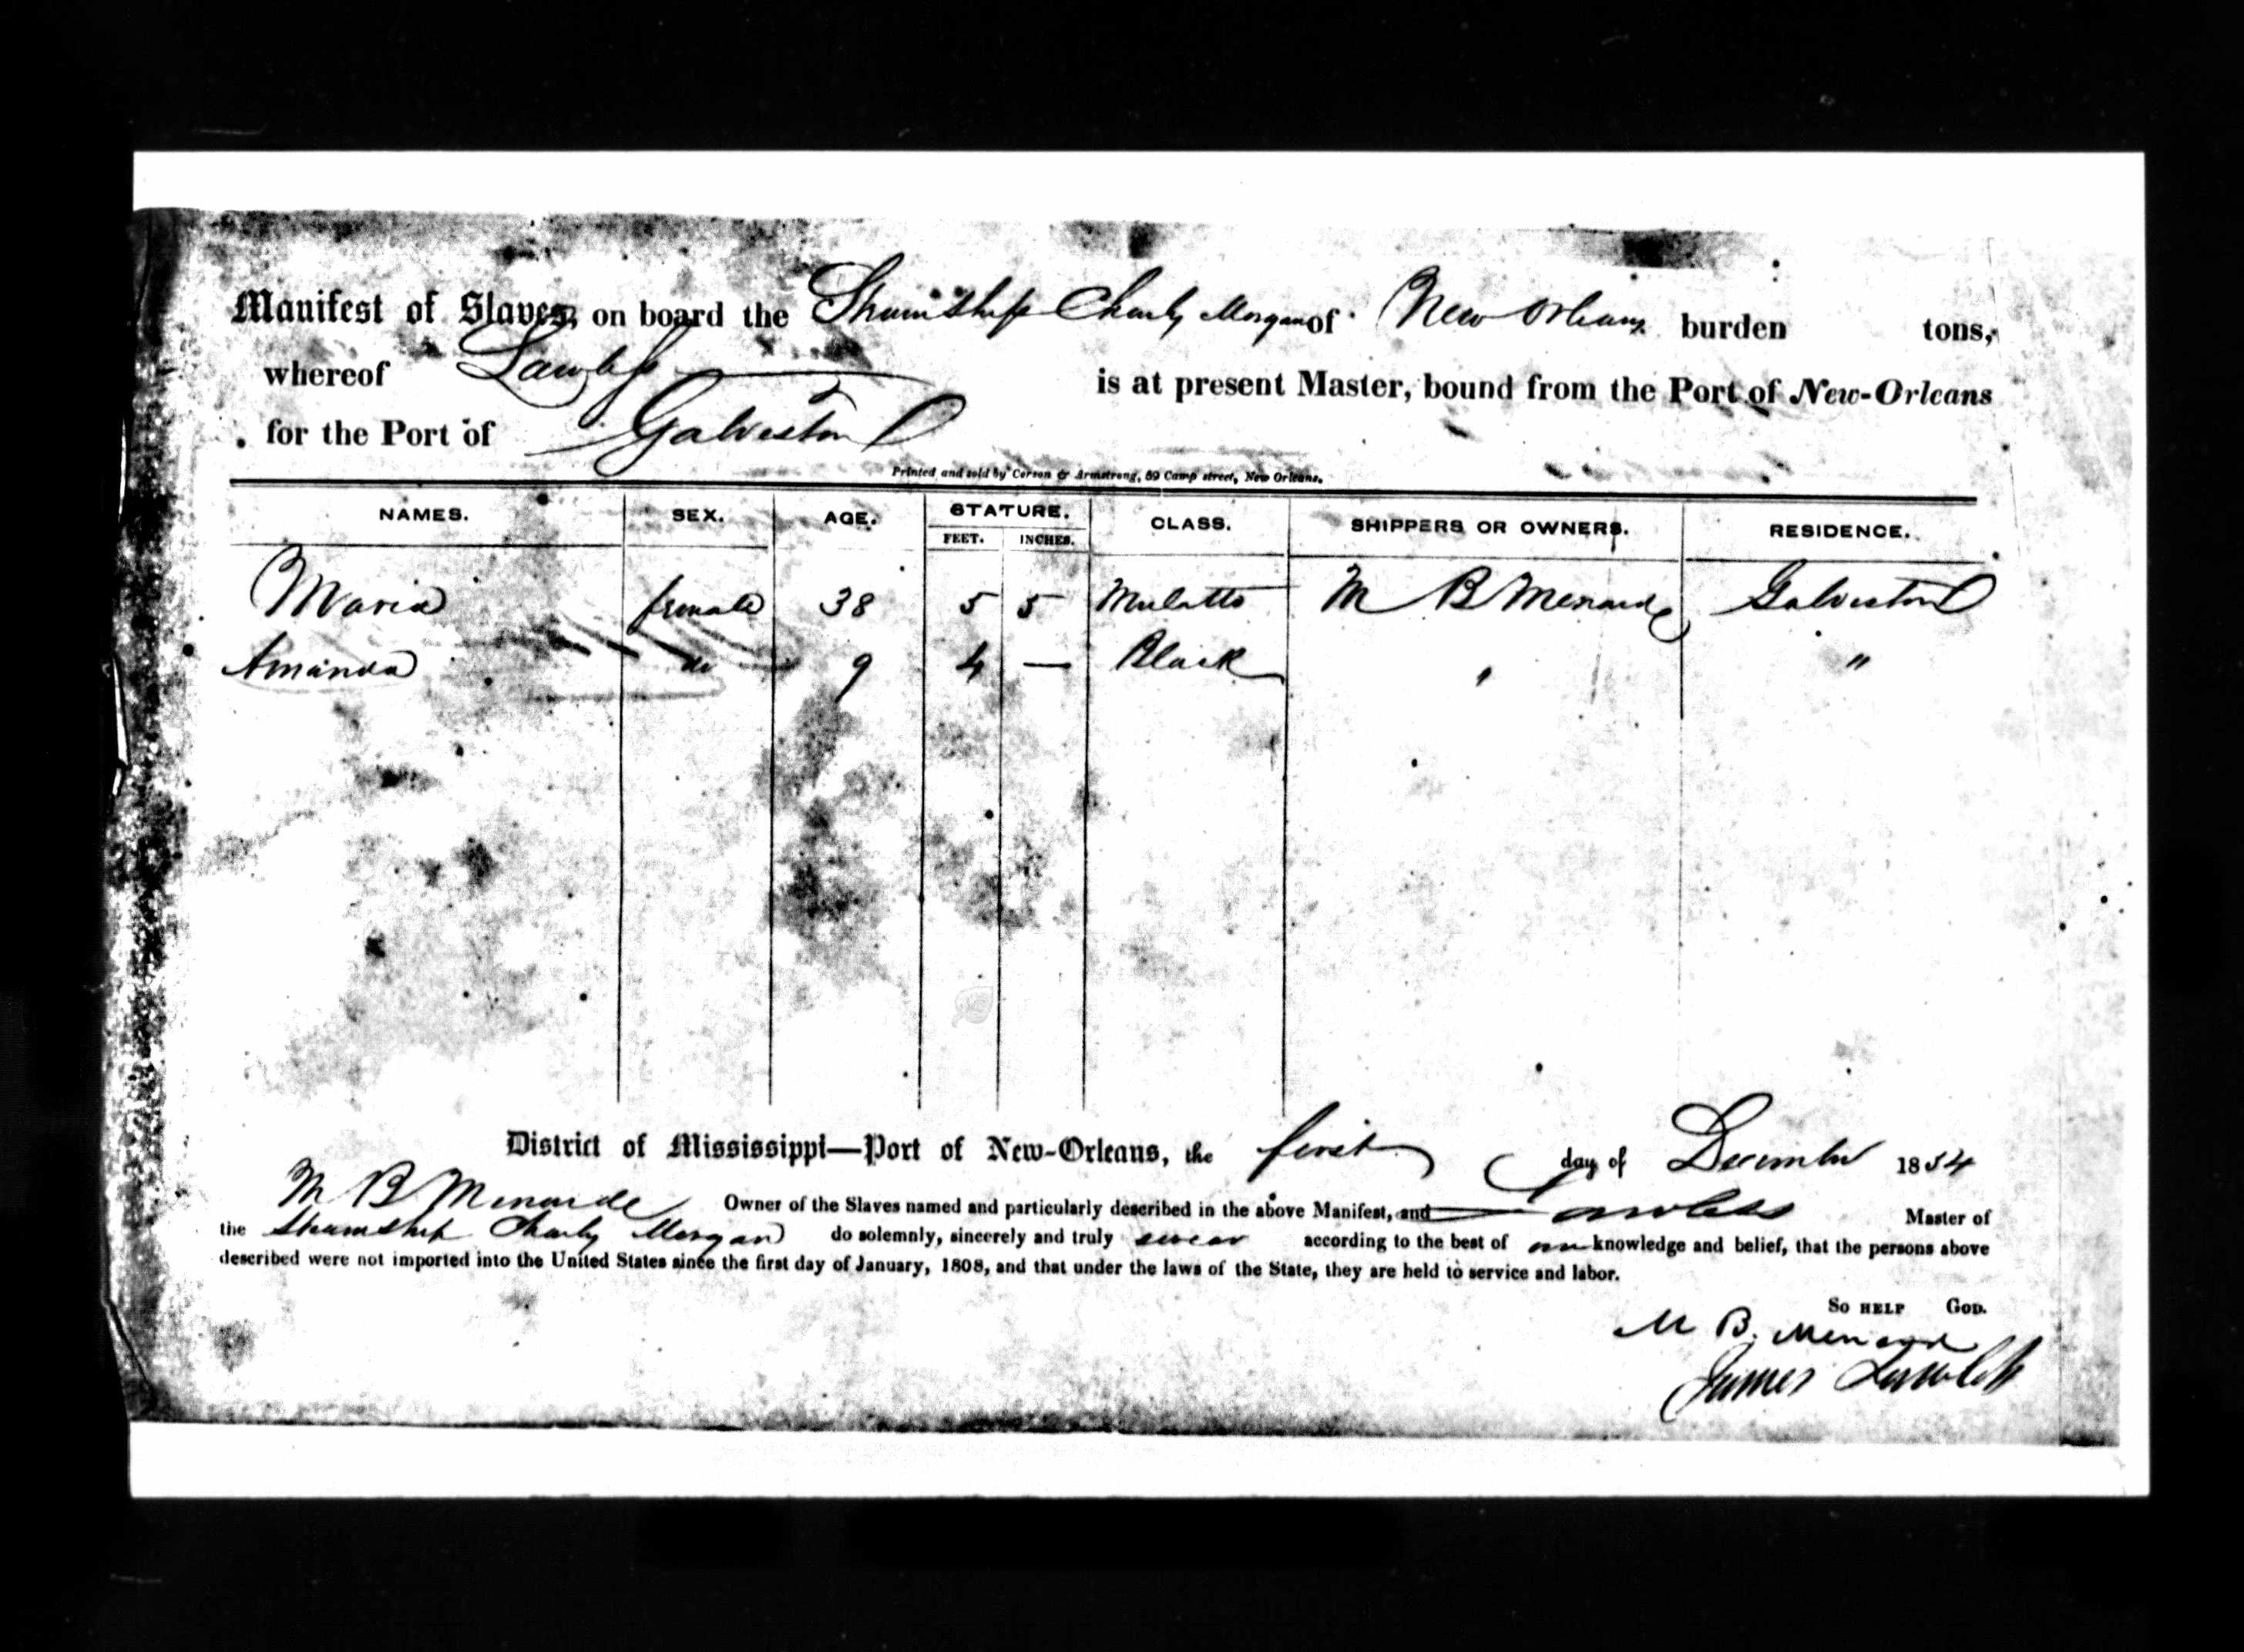 Manifest of Slaves, on board the Steamship Charly Morgan of New Orleans burden tons,
whereof Lawless is at present Master, bound from the Port of New-Orleans
for the Port of Galveston
Printed and sold by Corson & Armstrong, 59 Camp street, New Orleans.
NAMES. SEX. AGE. STATURE. CLASS. SHIPPERS OR OWNERS. RESIDENCE.
FEET. INCHES.
Maria female 38 5 5 Mulatto M B Menarde Galveston
Amanda do 9 4 — Black " "
District of Mississippi—Port of New-Orleans, the first day of December 1854
M B Menarde Owner of the Slaves named and particularly described in the above Manifest, and Lawless Master of
the Steamship Charly Morgan do solemnly, sincerely and truly swear according to the best of our knowledge and belief, that the persons above
described were not imported into the United States since the first day of January, 1808, and that under the laws of the State, they are held to service and labor.
So HELP GOD.
M B. Menard
James Lawless